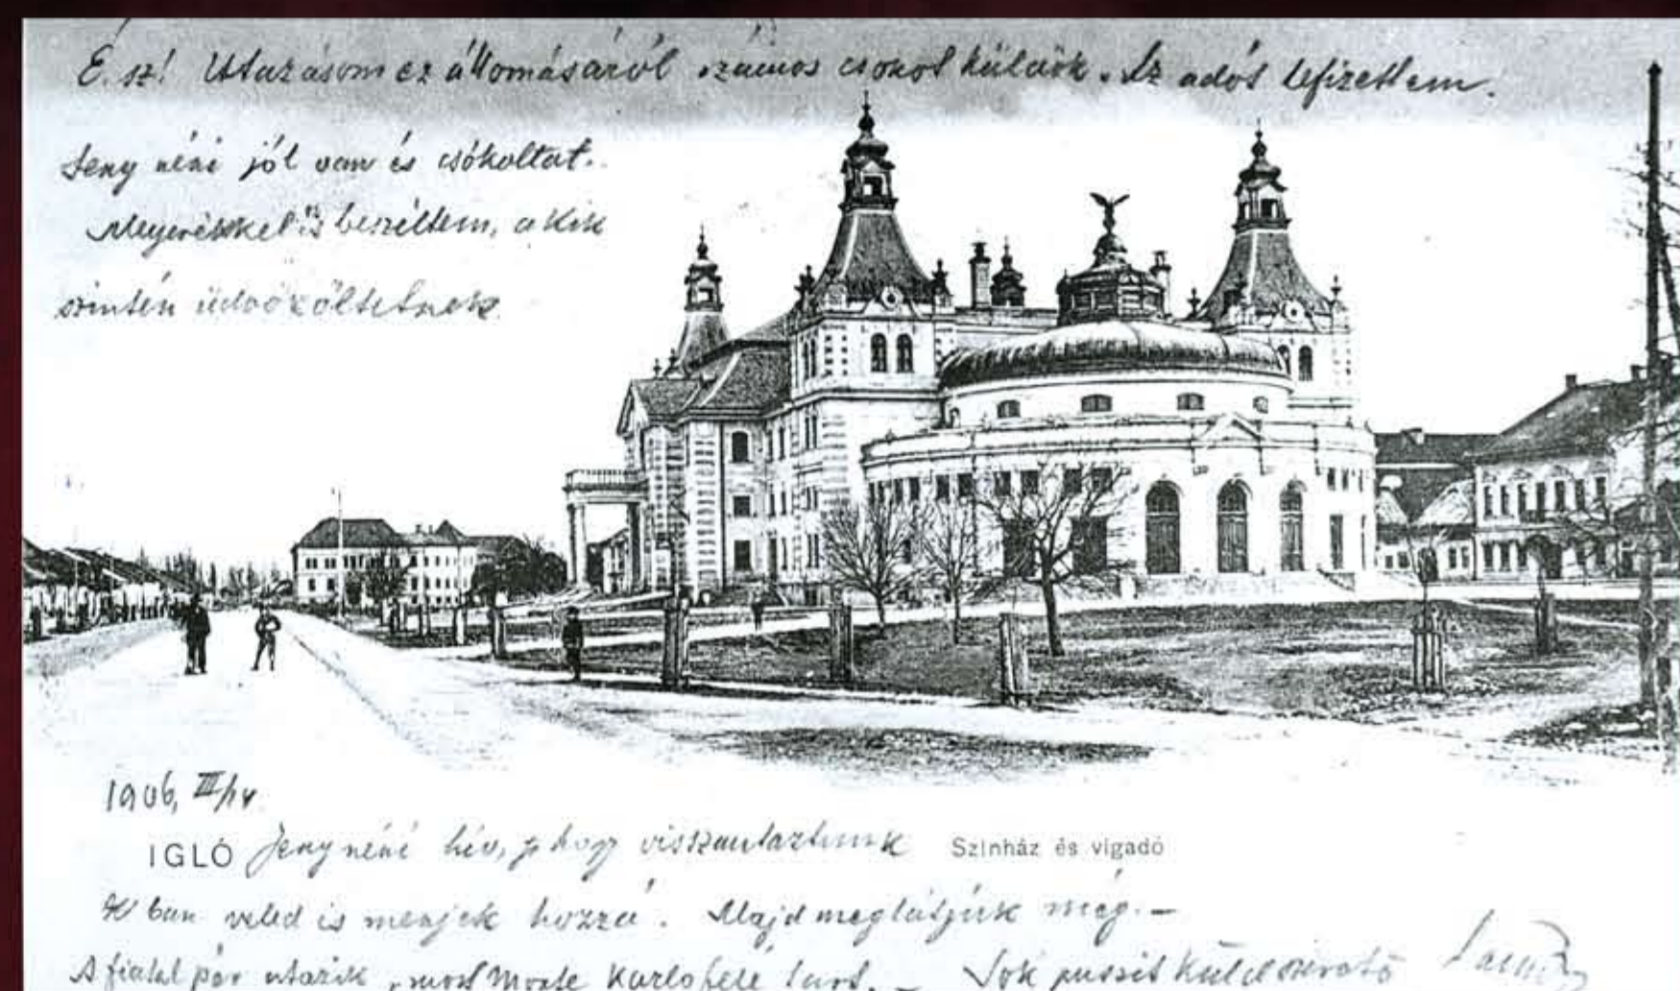 É. sz! Utazásom ez állomásáról számos csókot küldök. Az adót lefizettem.
Jeny néni jól van és csókoltat.
Megyerikkel is beszéltem, a kik
szintén üdvözöltetnek
1906, III/14
IGLÓ Jeny néni hív, hogy visszautaztunk Színház és vigadó
ban veled is menjek hozzá. Majd meglátjuk még. —
A fiatal pár utazik, most Monte Karlo felé tart. — Sok puszit küld szerető